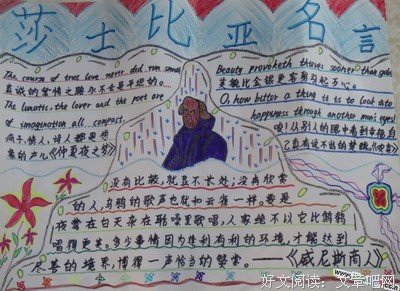 莎士比亚名言
The course of true love never did run smooth
真诚的爱情之路永不会是平坦的。
The lunatic, the lover and the poet are
of imagination all compact.
疯子、情人、诗人都是想
象的产儿《仲夏夜之梦》
Beauty provoketh thieves sooner than gold
美貌比金银更容易引起歹心。
O how bitter a thing it is to look into
happiness through another man's eyes!
唉!从别人的眼中看到幸福,自
己真有说不出的酸楚
没有比较,就显不长处;没有欣赏
的人,乌鸦的歌声也就和云雀一样。要是
夜莺在白天杂在聒噪里歌唱,人家绝不以它比鹪鹩
唱得更美。多少事情因为逢到有利的环境,才能达到
尽善的境界,博得一声恰当的赞赏。——《威尼斯商人》
好文阅读:文章吧网